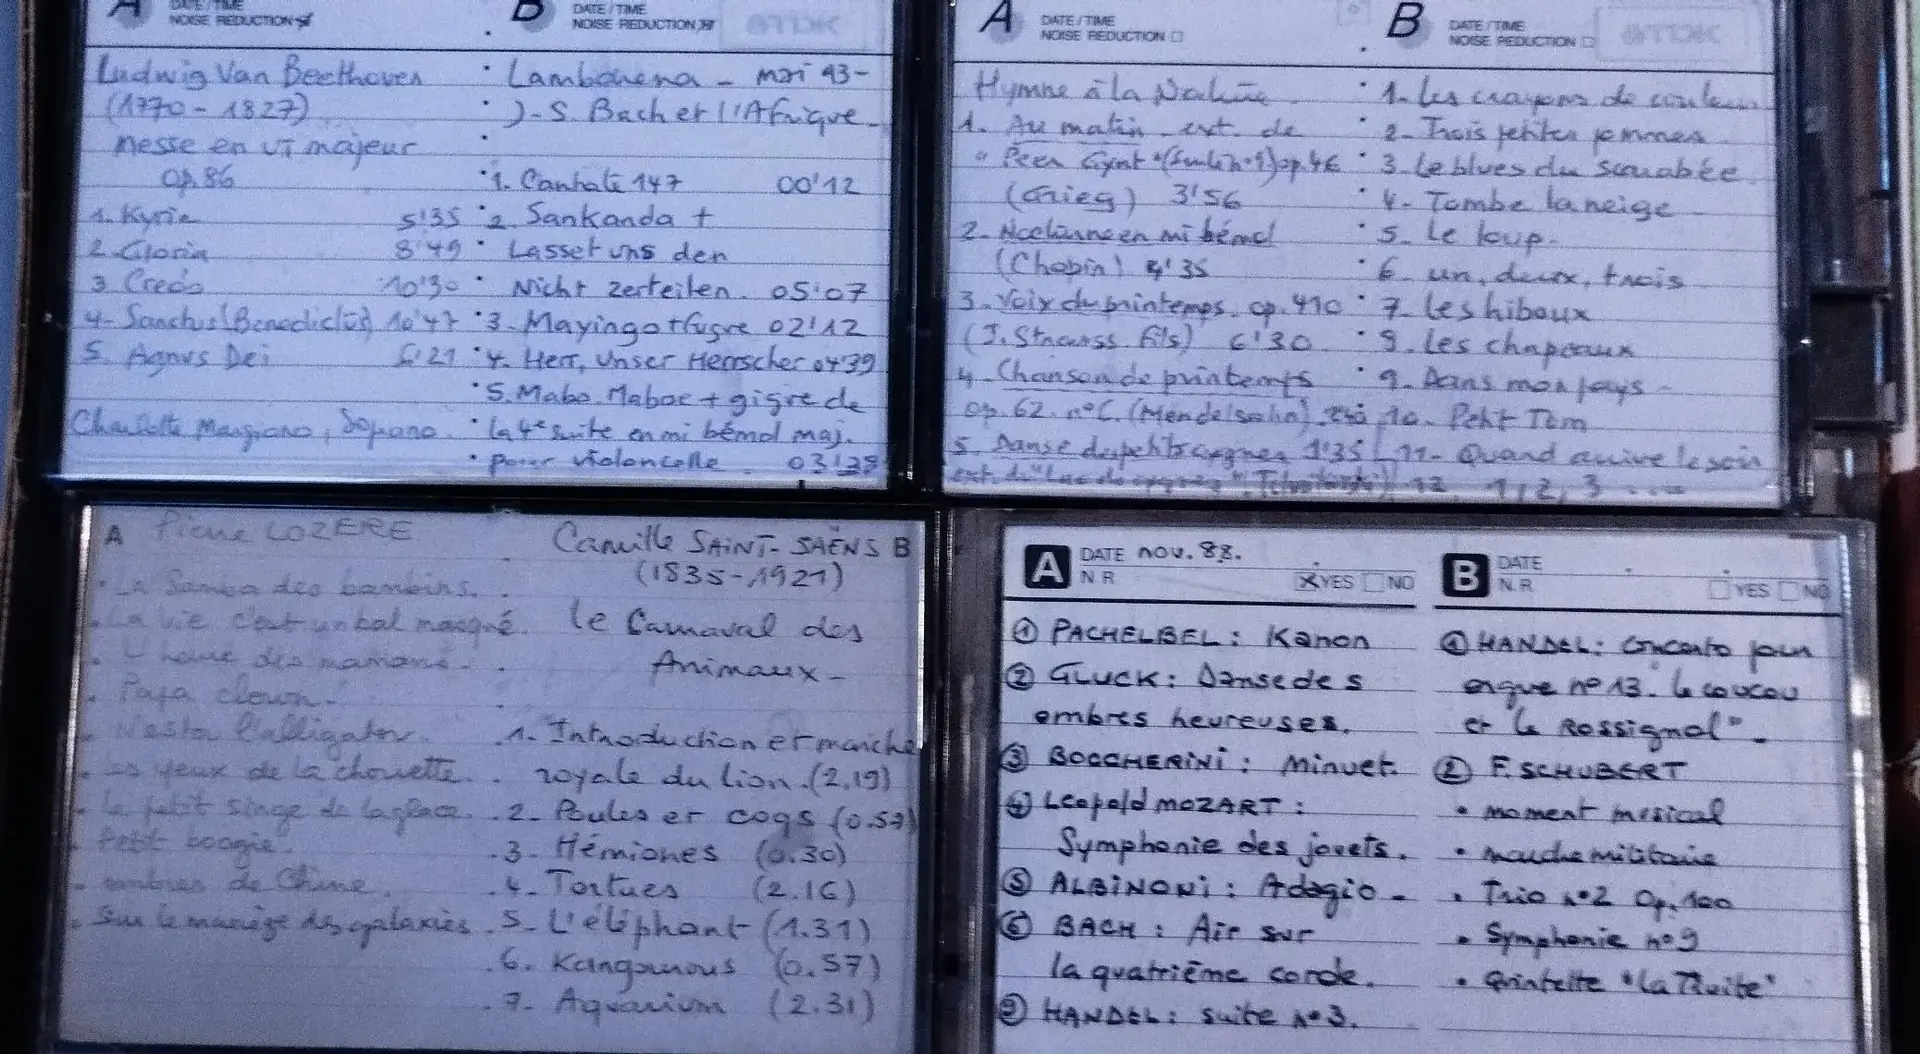 A
DATE/TIME
NOISE REDUCTION
B
DATE/TIME
NOISE REDUCTION
TDK
Ludwig Van Beethoven
(1770-1827)
messe en ut majeur
op. 86
1. Kyrie 5'35
2. Gloria 8'49
3. Credo 10'30
4- Sanctus (Benedictus) 10'47
5. Agnus Dei 6'21
Soprano.
Lambarena - mai 93-
J-S. Bach et l'Afrique.
1. Cantate 147 00'12
2. Sankanda +
Lasset uns den
Nicht zerteilen. 05'07
3- Mayingo + fugue 02'12
4. Herr, Unser Herrscher 04'39
5. Mabo Maboe + gigue de
la 4e suite en mi bémol maj.
pour violoncelle. 03'38
A
DATE/TIME
NOISE REDUCTION
B
DATE/TIME
NOISE REDUCTION
TDK
Hymne à la Nature.
1. Au matin - ext. de
"Peer Gynt" (Suite n°1) op. 46
(Grieg) 3'56
2. Nocturne en mi bémol
(Chopin) 4'35
3- Voix du printemps. op. 410
(J. Strauss fils) 6'30
4- Chanson de printemps
op. 62. n°6. (Mendelssohn)
5. Danse des petits cygnes 1'35
ext. du "Lac des cygnes"
1. Les crayons de couleur
2- Trois petites
3. Le blues du scarabée
4- Tombe la neige
5. Le loup.
6 un, deux, trois
7. Les hiboux
8. Les chapeaux
9. Dans mon pays -
10. Petit Tom
11- Quand arrive le soir
12 1, 2, 3 ....
A Pierre LOZERE
La Samba des bambins.
La vie c'est un bal masqué.
Papa clown.
Nestor l'alligator.
Les yeux de la chouette.
Le petit singe de la place.
Petit boogie.
ombres de Chine.
Sur le manège des galaxies.
Camille SAINT-SAËNS B
(1835-1921)
Le Carnaval des
Animaux -
1. Introduction et marche
royale du lion. (2.19)
2- Poules et coqs (0.57)
3- Hémiones (0.30)
4- Tortues (2.16)
5. L'éléphant (1.31)
6. Kangourous (0.57)
7- Aquarium (2.31)
A DATE nov. 88.
N.R. YES NO
① PACHELBEL: Kanon
② GLUCK: Danse des
ombres heureuses.
③ BOCCHERINI: Minuet.
④ Leopold MOZART:
Symphonie des jouets.
⑤ ALBINONI: Adagio -
⑥ BACH: Air sur
la quatrième corde.
HANDEL: suite n°3.
B DATE
N.R. YES NO
① HANDEL: Concerto pour
orgue n°13. le coucou
et le Rossignol" -
② F. SCHUBERT
• moment musical
• marche militaire
• Trio n°2 Op. 100
• Symphonie n°9
• Quintette "La Truite"